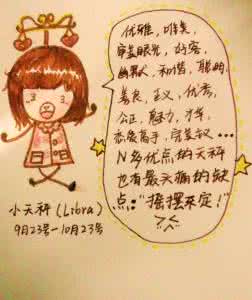 优雅, 唯美,
审美眼光, 好客,
幽默, 和谐, 聪明
善良, 正义, 优秀,
公正, 魅力, 才华,
恋爱高手, 完美...
N多优点的天秤
也有最头痛的缺
点:"摇摆不定!"
小天秤 (Libra)
9月23号-10月23号